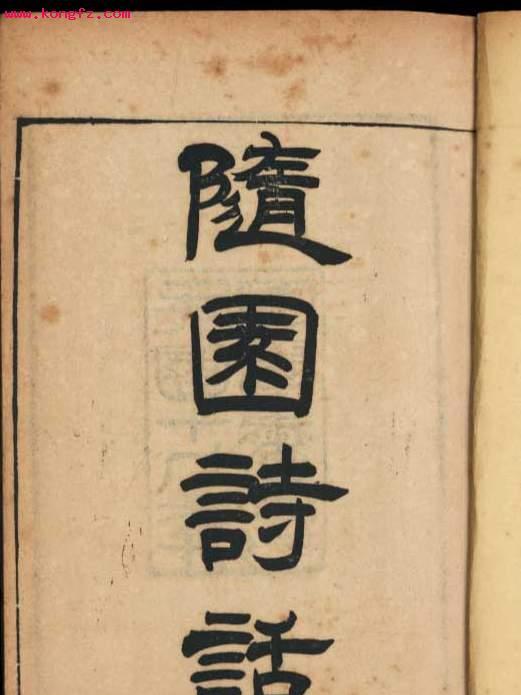 www.kongfz.com
隨園詩話